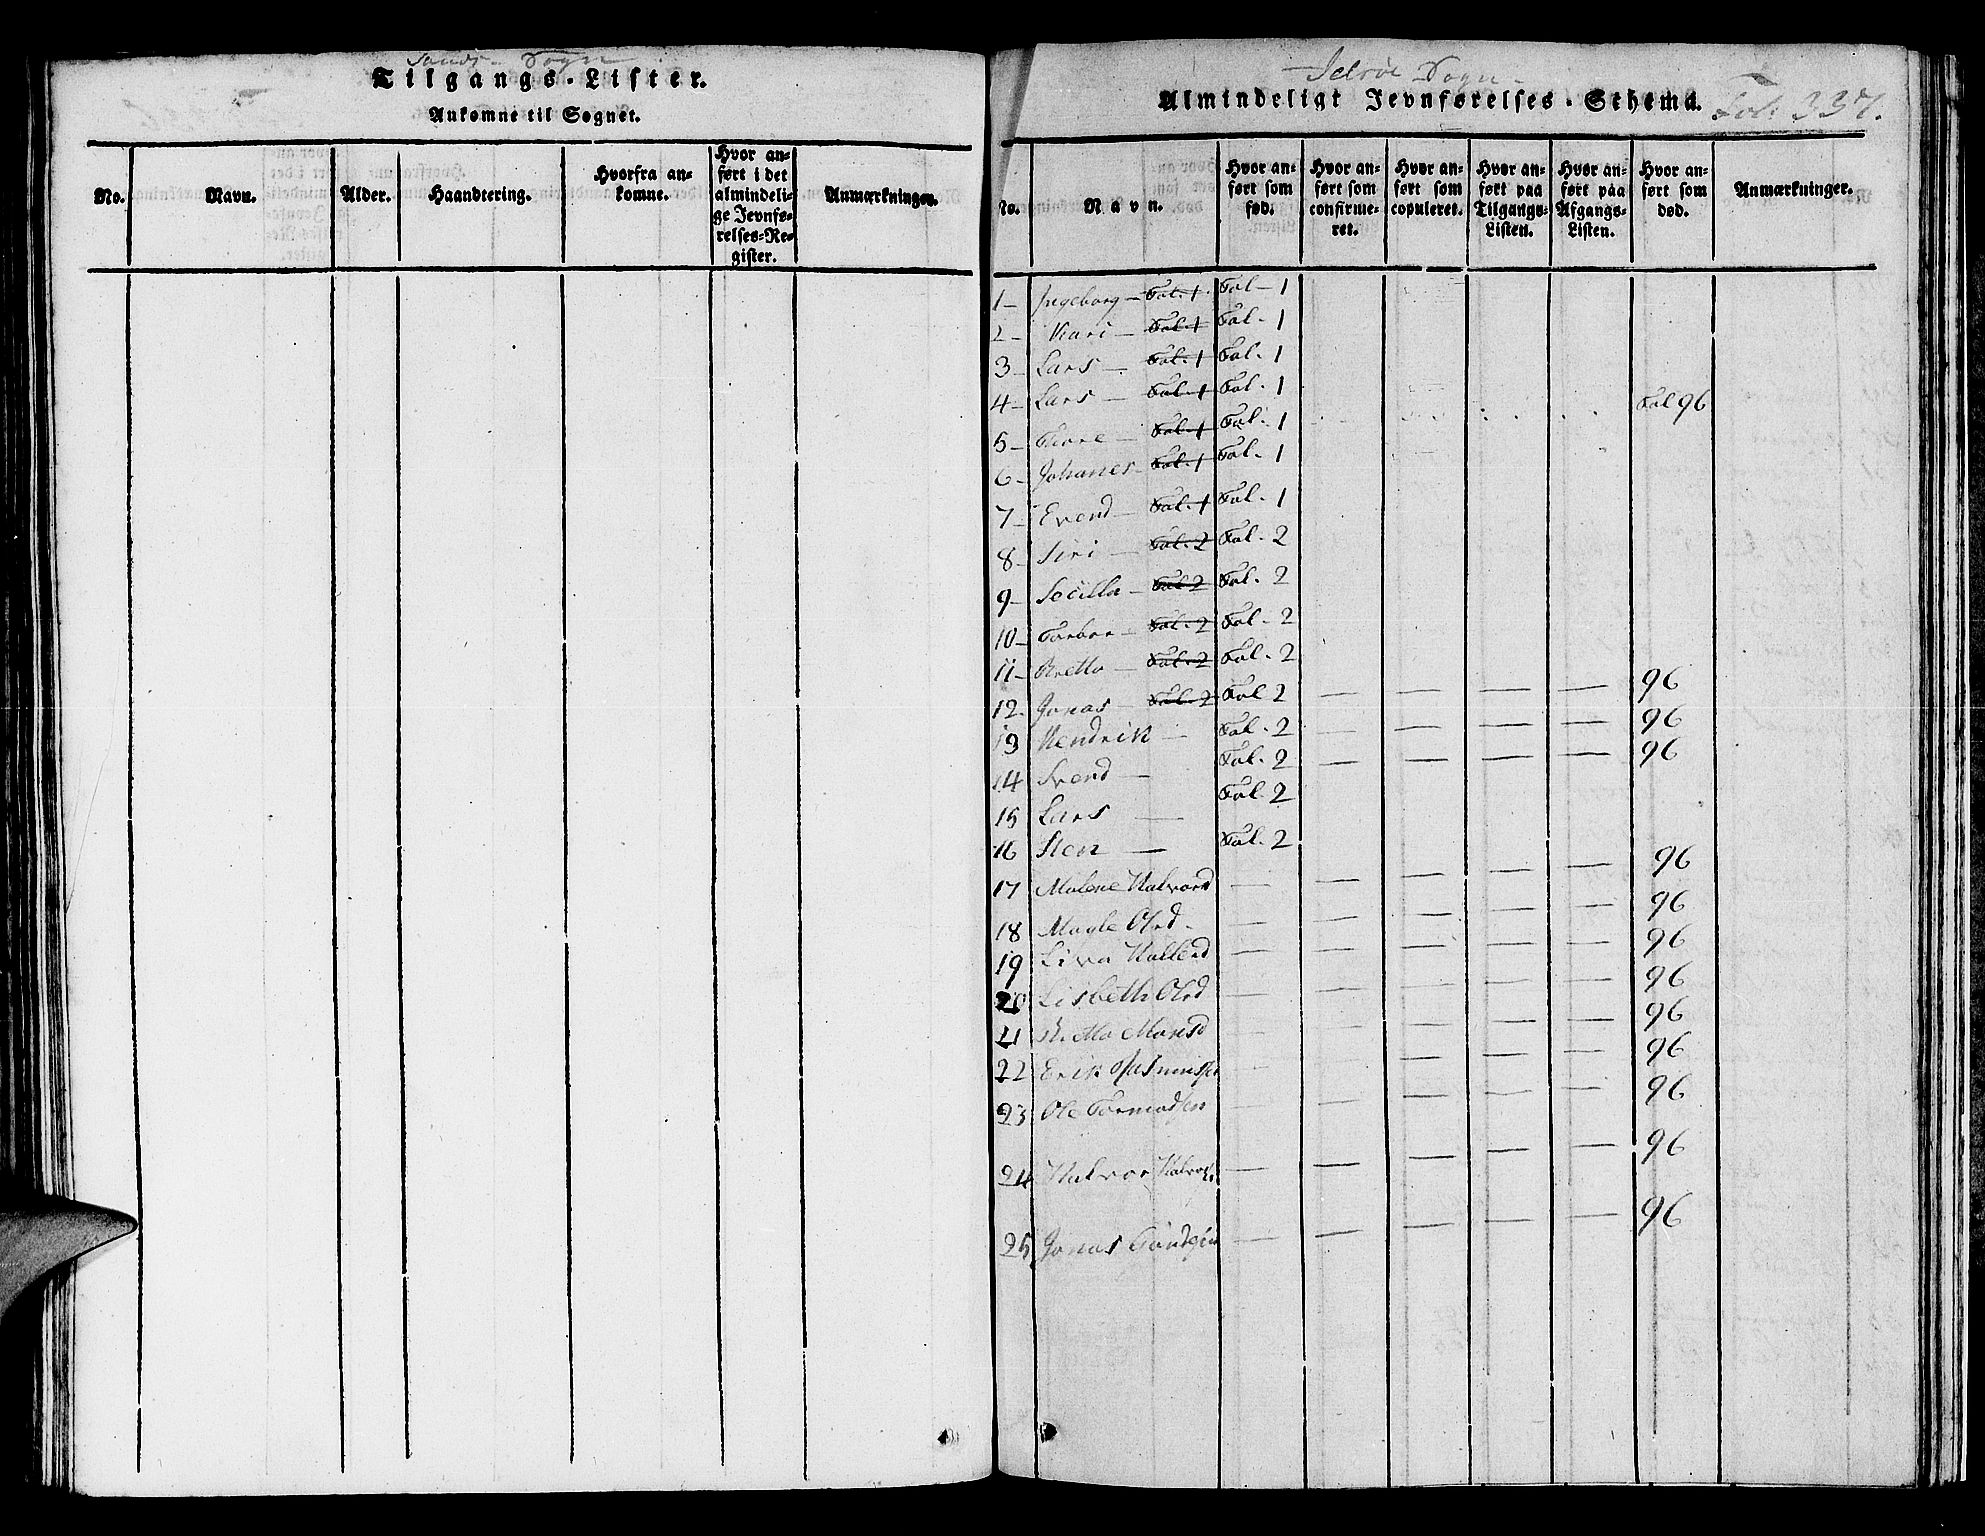 Sands - Sogn
Tilgangs-Lister.
Ankomne til Sognet.
No. Navn. Alder. Haandtering. Hvorfra ankomne. Hvor anført i det almindelige Jevnførelses-Register. Anmærkninger.
Jelsøe Sogn -
Almindeligt Jevnførelses-Schema. Fol: 337.
No. Navn. Hvor anført som fød. Hvor anført som confirmeret. Hvor anført som copuleret. Hvor anført paa Tilgangs-Listen. Hvor anført paa Afgangs-Listen. Hvor anført som død. Anmærkninger.
1 - Ingeborg - Fol. 1 Fol - 1
2 - Kari - Fol. 1 Fol. 1
3 - Lars - Fol. 1 Fol. 1
4 - Lars - Fol. 1 Fol. 1 Fol 96
5 - Thore - Fol. 1 Fol. 1
6 - Johanes - Fol. 1 Fol. 1
7 - Evend - Fol. 1 Fol. 1
8 - Siri - Fol. 2 Fol. 2
9 - Secilla - Fol 2 Fol. 2
10 - Torbor - Fol. 2 Fol. 2
11 - Bretto - Fol. 2 Fol. 2
12. Jonas - Fol. 2 Fol 2 — — — — 96
13 Hendrik — Fol. 2 — — — — 96
14 Svend — Fol. 2 — — — — 96
15 Lars — Fol 2
16 Sten — Fol. 2
17 Malene Halvord — — — — — 96
18 Magle Olsd - — — — — — 96
19 Liva — — — — — 96
20 Lisbeth Olsd — — — — — 96
21 Monsd — — — — — 96
22 Erik — — — — — 96
23 Ole Tormodsen — — — — — 96
24 Halvor Halvors. — — — — — 96
25 Jonas — — — — — 96